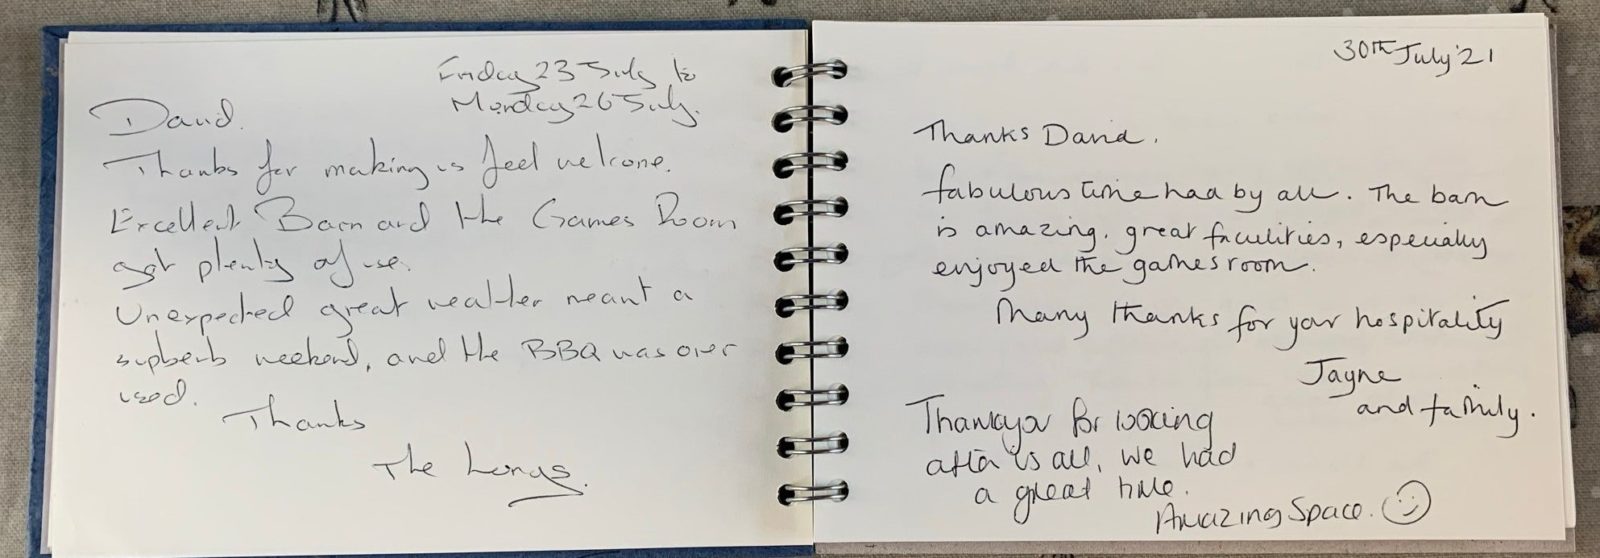 Friday 23 July to
Monday 26 July.
David.
Thanks for making us feel welcome.
Excellent Barn and the Games Room
got plenty of use.
Unexpected great weather meant a
superb weekend, and the BBQ was over
used.
Thanks
The Longs.
30th July '21
Thanks David.
fabulous time had by all. The barn
is amazing. great facilities, especially
enjoyed the games room.
Many thanks for your hospitality
Jayne
and family.
Thankyou for looking
after us all, we had
a great time.
Amazing Space.